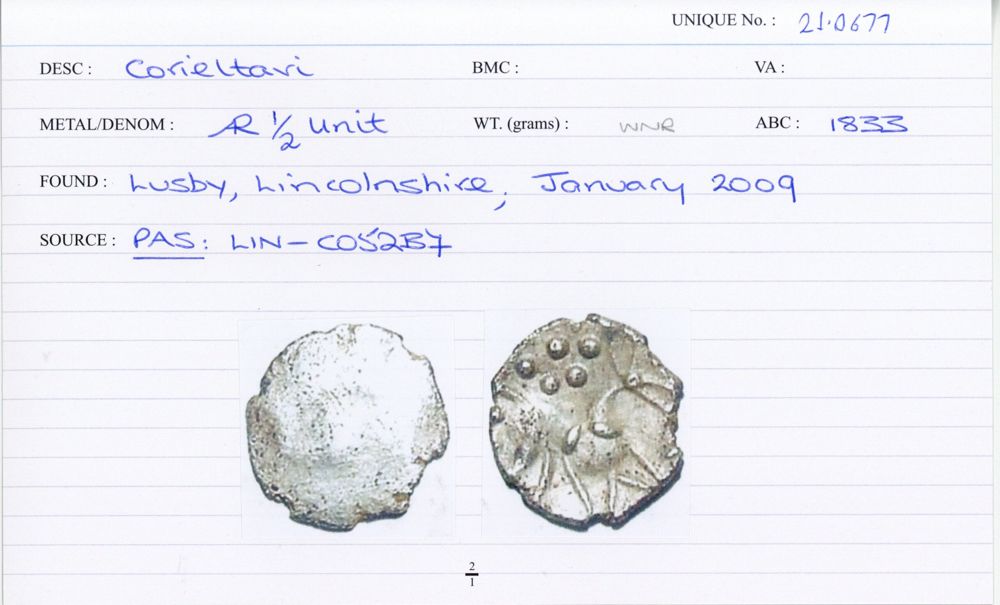 UNIQUE No. : 21.0677
DESC : Corieltavi BMC : VA :
METAL/DENOM : AR 1/2 Unit WT. (grams) : WNR ABC : 1833
FOUND : Lusby, Lincolnshire, January 2009
SOURCE : PAS: LIN-C052B7
2/1